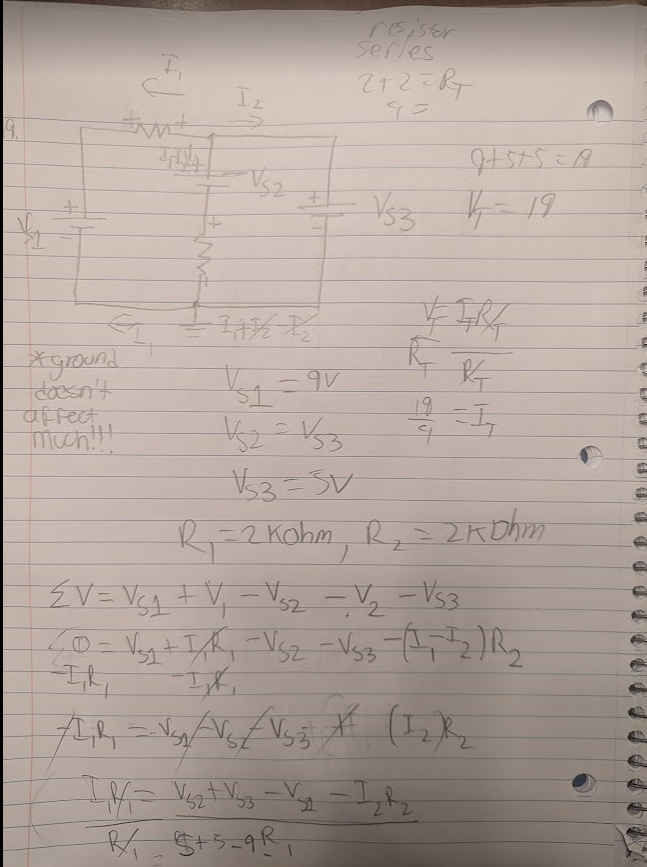 resistor
series
2+2=R_T
4=
I_1
I_2
9.
9+5+5=19
V_S2
V_S1
V_S3
V_T = 19
I_1+I_2-I_2
I_1
V_T=I_TR_T
R_T R_T
19/4 = I_T
*ground
doesn't
affect
much!!!
V_S1 = 9V
V_S2 = V_S3
V_S3 = 5V
R_1=2KOhm, R_2=2KOhm
ΣV=V_S1+V_1-V_S2-V_2-V_S3
0=V_S1+I_1R_1-V_S2-V_S3-(I_1-I_2)R_2
-I_1R_1 -I_1R_1
-I_1R_1=-V_S1-V_S2-V_S3 (I_2)R_2
I_1R_1=V_S2+V_S3-V_S1-I_2R_2
R_1 = 5+5-9 R_1